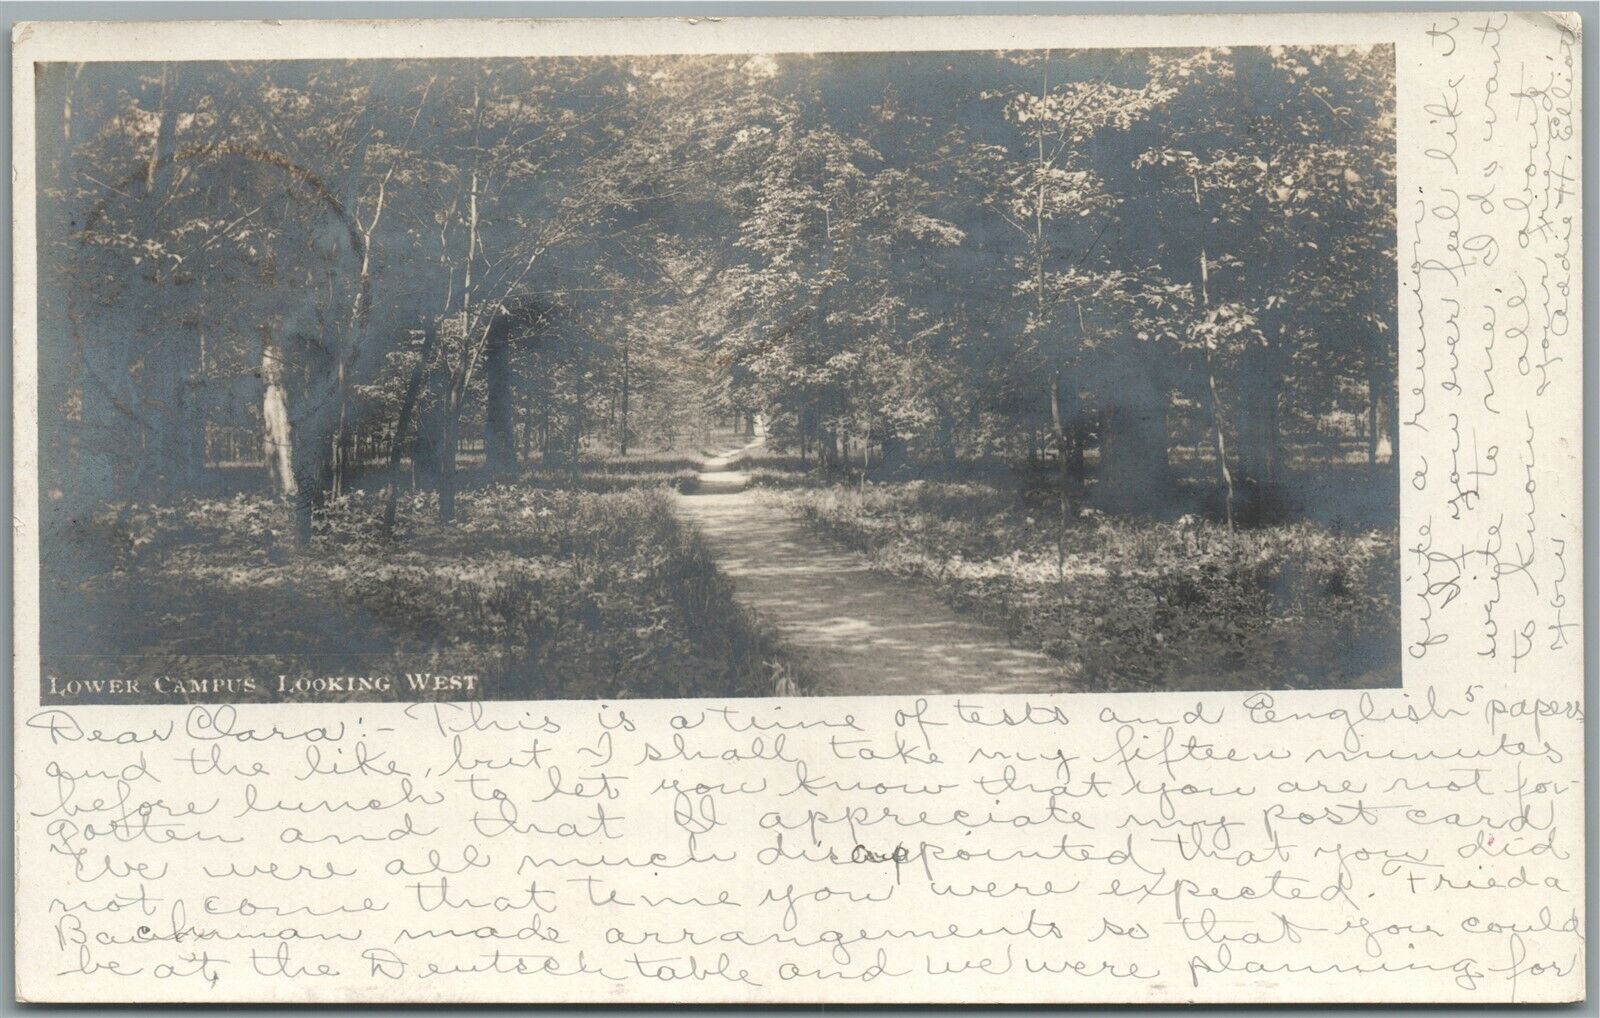 LOWER CAMPUS LOOKING WEST
Dear Clara:- This is a time of tests and English 5 papers
and the like, but I shall take my fifteen minutes
before lunch to let you know that you are not for-
gotten and that I appreciate my post card
We were all much disappointed that you did
not come that time you were expected. Frieda
made arrangements so that you could
be at the Deutsch table and we were planning for
quite a reunion.
If you ever feel like it
write to me, I do want
to know all about
you.
Your friend,
Addie H. Elliott